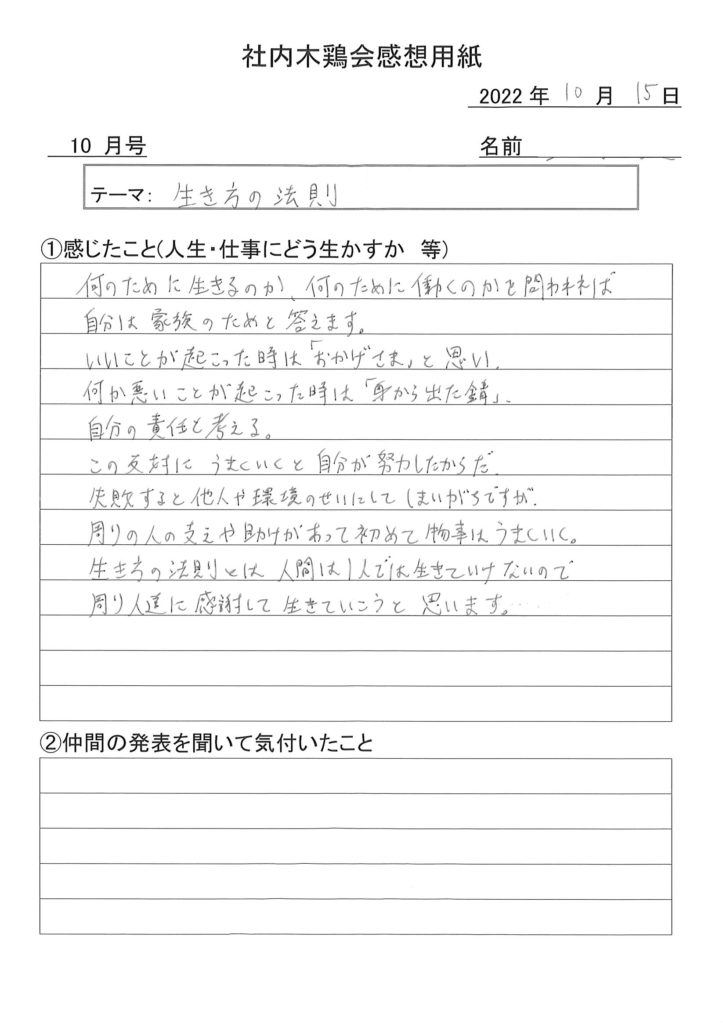 社内木鶏会感想用紙
2022 年 10 月 15 日
10 月号
名前
テーマ： 生き方の法則
①感じたこと(人生・仕事にどう生かすか 等)
何のために生きるのか、何のために働くのかを問われれば
自分は家族のためと答えます。
いいことが起こった時は「おかげさま」と思い、
何か悪いことが起こった時は「身から出た錆」、
自分の責任と考える。
この反対に うまくいくと自分が努力したからだ、
失敗すると他人や環境のせいにしてしまいがちですが、
周りの人の支えや助けがあって初めて物事はうまくいく。
生き方の法則とは 人間は1人では生きていけないので
周り人達に感謝して生きていこうと思います。
②仲間の発表を聞いて気付いたこと